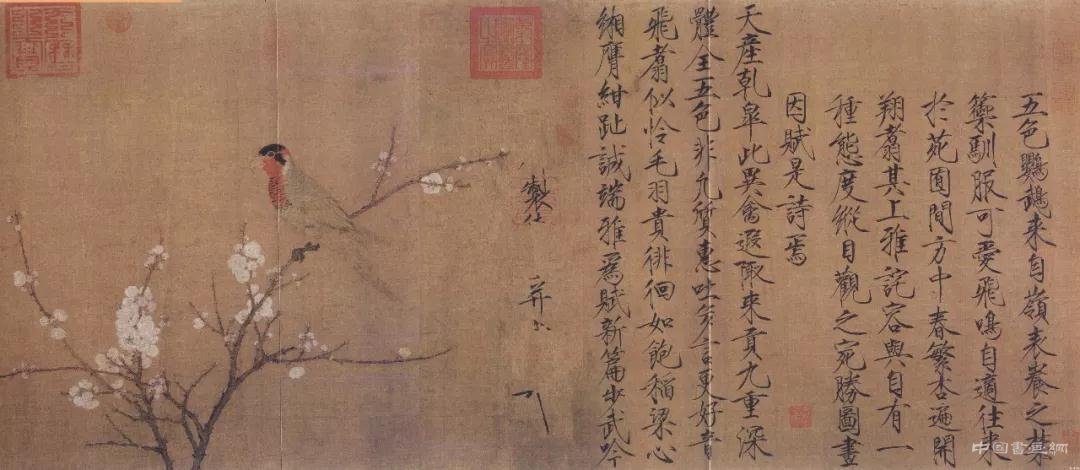 五色鸚䳇来自嶺表養之禁
籞馴服可愛飛鳴自適往来
於苑囿間方中春繁杏遍開
翔翥其上雅詫容與自有一
種態度縱目觀之宛勝圖畫
因賦是詩焉
天產乾皐此異禽遐陬来貢九重深
體全五色非凡質惠吐多言更好音
飛翥似怜毛羽貴徘徊如飽稻粱心
緗膺紺趾誠端雅為賦新篇步武吟
製
并
中國書畫網